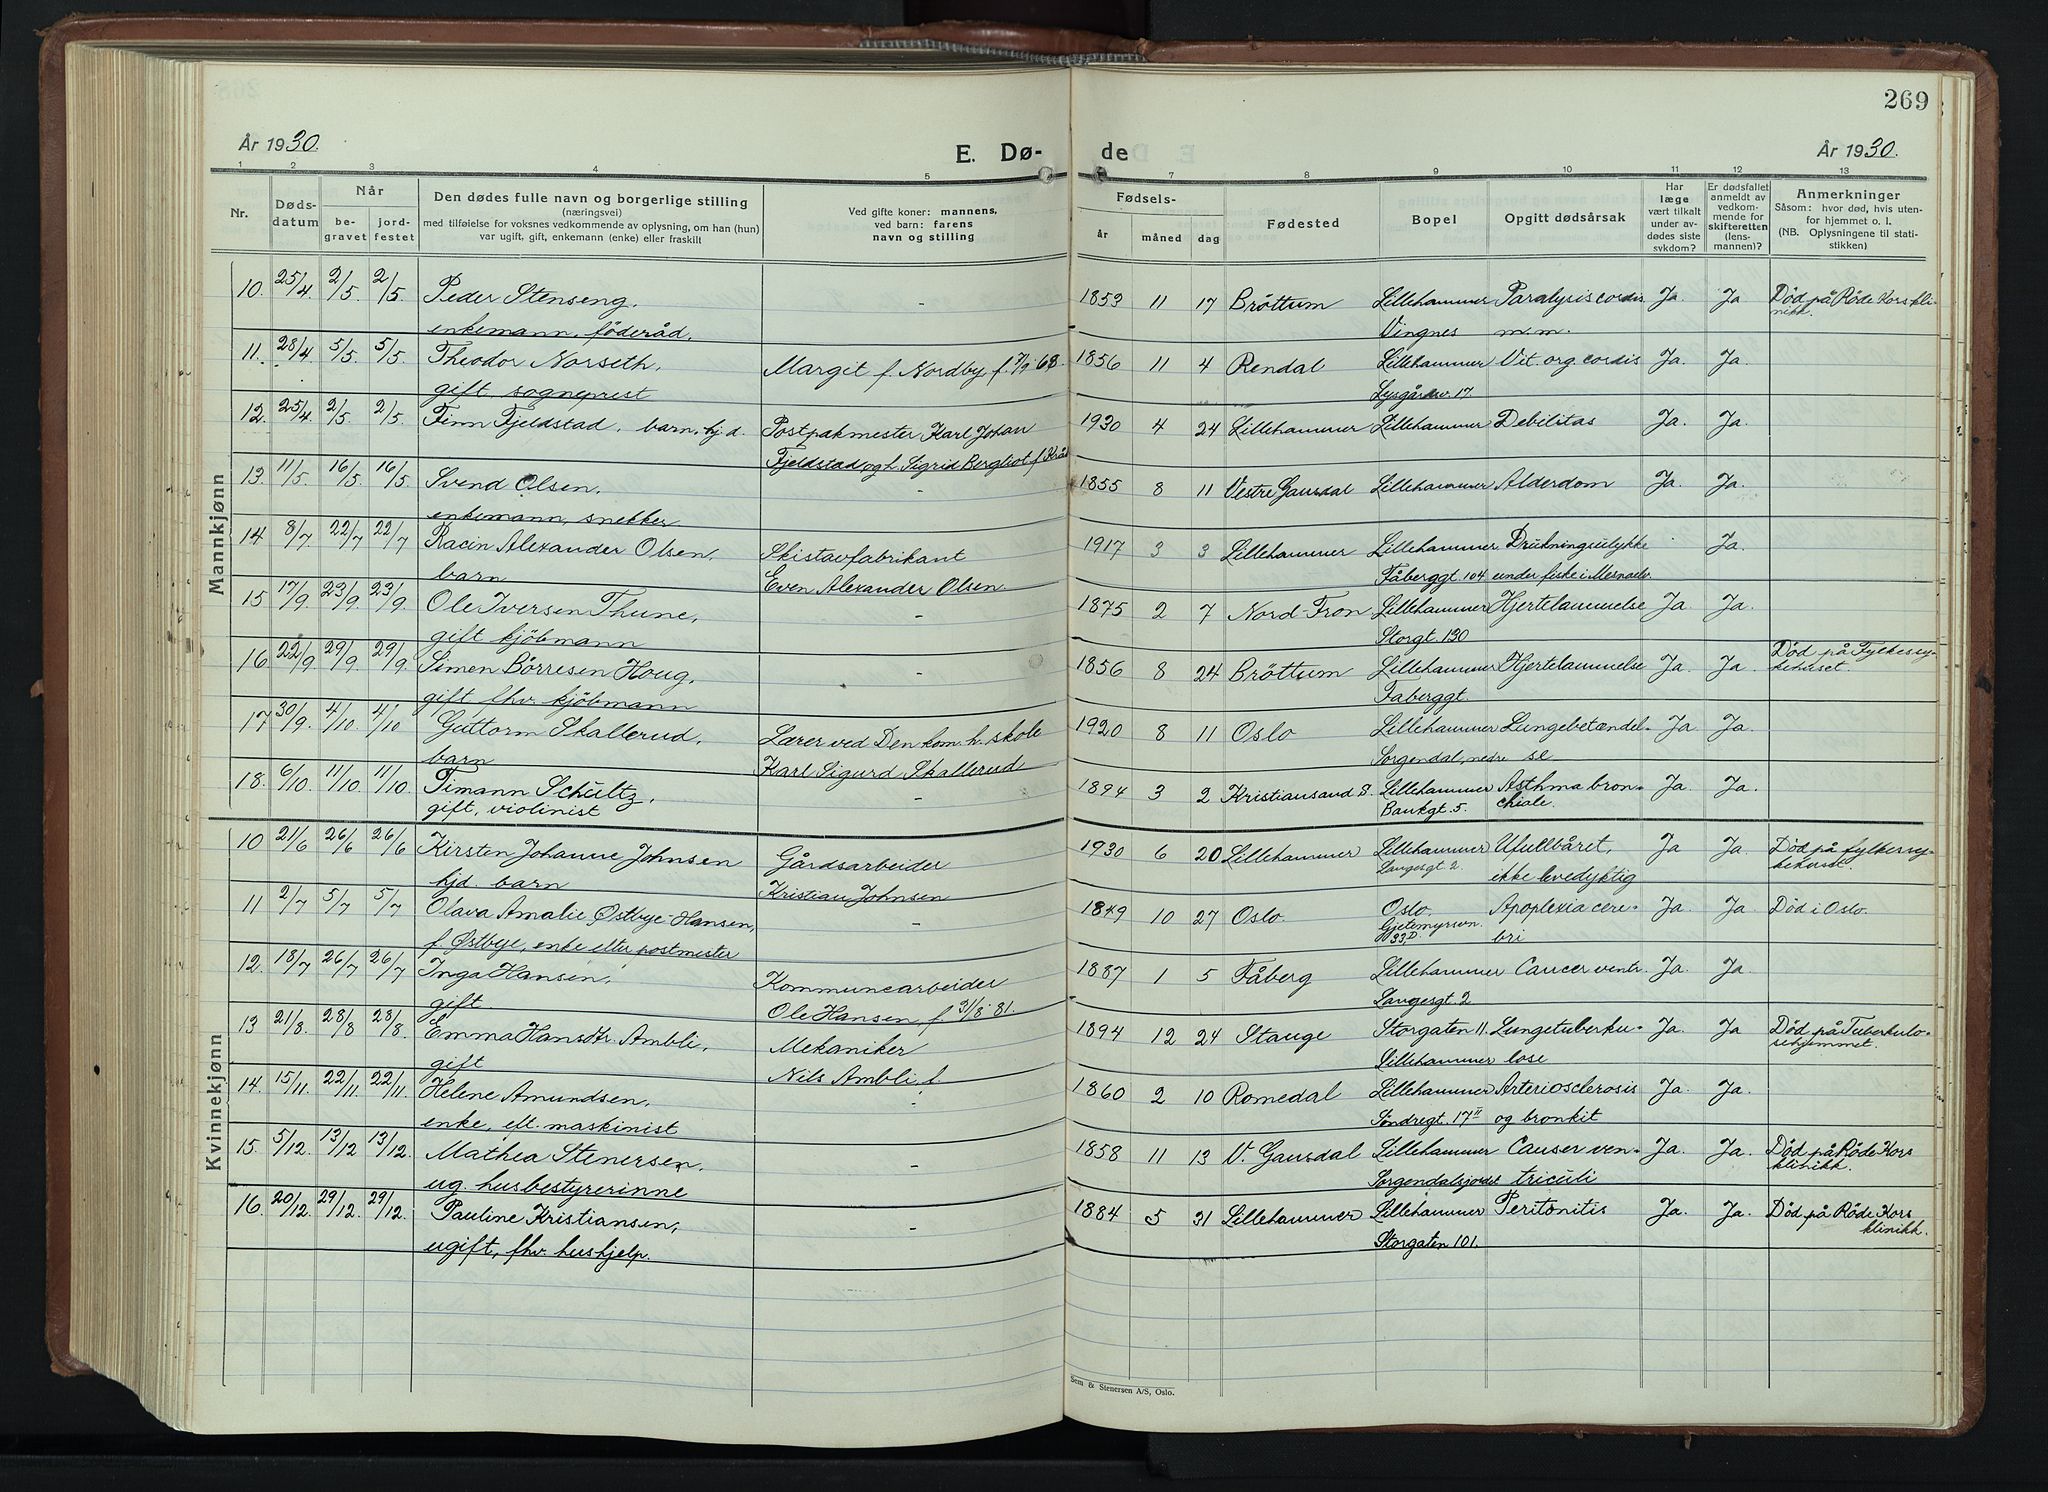 269
År 1930.
E. Dø-
de
År 1930.
1 2 3 4 5 7 8 9 10 11 12 13
Nr.
Døds-
datum
Når
be-
gravet
jord-
festet
Den dødes fulle navn og borgerlige stilling
(næringsvei)
med tilføielse for voksnes vedkommende av oplysning, om han (hun)
var ugift, gift, enkemann (enke) eller fraskilt
Ved gifte koner: mannens,
ved barn: farens
navn og stilling
Fødsels-
år
måned
dag
Fødested
Bopel
Opgitt dødsårsak
Har
læge
vært tilkalt
under av-
dødes siste
sykdom?
Er dødsfallet
anmeldt av
vedkom-
mende for
skifteretten
(lens-
mannen)?
Anmerkninger
Såsom: hvor død, hvis uten-
for hjemmet o. l.
(NB. Oplysningene til stati-
stikken)
Mannkjønn
10. 25/4. 2/5. 2/5 Peder Stenseng, - 1853 11 17 Bröttum Lillehammer Paralysis cordis Ja. Ja Död på Röde Kors kli-
enkemann, föderåd, Vingnes m.m. nikk.
11. 28/4 5/5. 5/5. Theodor Norseth, Margit f. Nordby f. 7/9-68. 1856 11 4 Rendal Lillehammer Vit. org. cordis Ja. Ja.
gift, sogneprest Lysgårdsv. 17.
12. 25/4. 2/5. 2/5 Finn Fjeldstad, barn, hj.d. Postpakmester Karl Johan 1930 4 24 Lillehammer Lillehammer Debilitas Ja. Ja.
Fjeldstad og h. Sigrid Bergliot f.
13. 11/5. 16/5. 16/5. Svend Olsen, - 1855 8 11 Vestre Gausdal Lillehammer Alderdom Ja. Ja.
enkemann, snekker
14 8/7. 22/7 22/7 Racin Alexander Olsen, Skistavfabrikant 1917 3 3 Lillehammer Lillehammer Drukningsulykke Ja.
barn Even Alexander Olsen. Fåberggt. 104 under fiske i Mesnaelv.
15 17/9. 23/9. 23/9. Ole Iversen Thune, - 1875 2 7 Nord-Fron Lillehammer Hjertelammelse Ja Ja.
gift kjöbmann Storgt. 130
16 22/9 29/9 29/9. Simen Börresen Houg, - 1856 8 24 Bröttum Lillehammer Hjertelammelse Ja Ja. Död på Fylkessy-
gift fhv. kjöbmann Faberggt. kehuset.
17 30/9. 4/10 4/10 Guttorm Skallerud, Lærer ved Den kom. h. skole 1920 8 11 Oslo Lillehammer Lungebetændel- Ja Ja.
barn Karl Sigurd Skallerud Sorgendal, nedre se
18. 6/10. 11/10 11/10 Timann Schultz, - 1894 3 2 Kristiansand S. Lillehammer Asthma bron- Ja. Ja.
gift, violinist Bankgt. 5. chiale.
Kvinnekjønn
10 21/6 26/6 26/6 Kirsten Johanne Johnsen Gårdsarbeider 1930 6 20 Lillehammer Lillehammer Ufullbåret, Ja Ja. Död på fylkessy-
hjd. barn Kristian Johnsen Langesgt 2. ikke levedyktig kehuset.
11 2/7 5/7 5/7 Olava Amalie Østbye-Hansen, - 1849 10 27 Oslo. Oslo. Apoplexia cere- Ja. Ja. Död i Oslo.
f. Østbye, enke efter postmester Gjetemyrsvn. 33D. bri
12. 18/7 26/7 26/7 Inga Hansen, Kommunearbeider 1887 1 5 Fåberg Lillehammer Cancer ventr. Ja. Ja.
gift Ole Hansen, f. 31/8-81. Langesgt. 2
13 21/8. 28/8 28/8. Emma Hansdtr. Ambli, Mekaniker 1894 12 24 Stange Storgaten 11. Lungetuberku- Ja. Ja Död på Tuberkulo-
gift Nils Ambli f. Lillehammer lose sehjemmet.
14. 15/11. 22/11 22/11. Helene Amundsen, - 1860 2 10 Romedal Lillehammer Arteriosclerosis Ja. Ja.
enke, eft. maskinist Söndregt. 17 II og bronkit
15. 5/12. 13/12 13/12. Mathea Stenersen, - 1858 11 13 V. Gausdal Lillehammer Causer ven- Ja. Ja. Död på Röde Kors
ug. husbestyrerinne Sorgendalsjordet triculi klinikk.
16. 20/12. 29/12. 29/12. Pauline Kristiansen, - 1884 5 31 Lillehammer Lillehammer Peritonitis Ja. Ja. Död på Röde Kors
ugift, fhv. hushjelp. Storgaten 101. klinikk.
Sem & Stenersen A/S, Oslo.